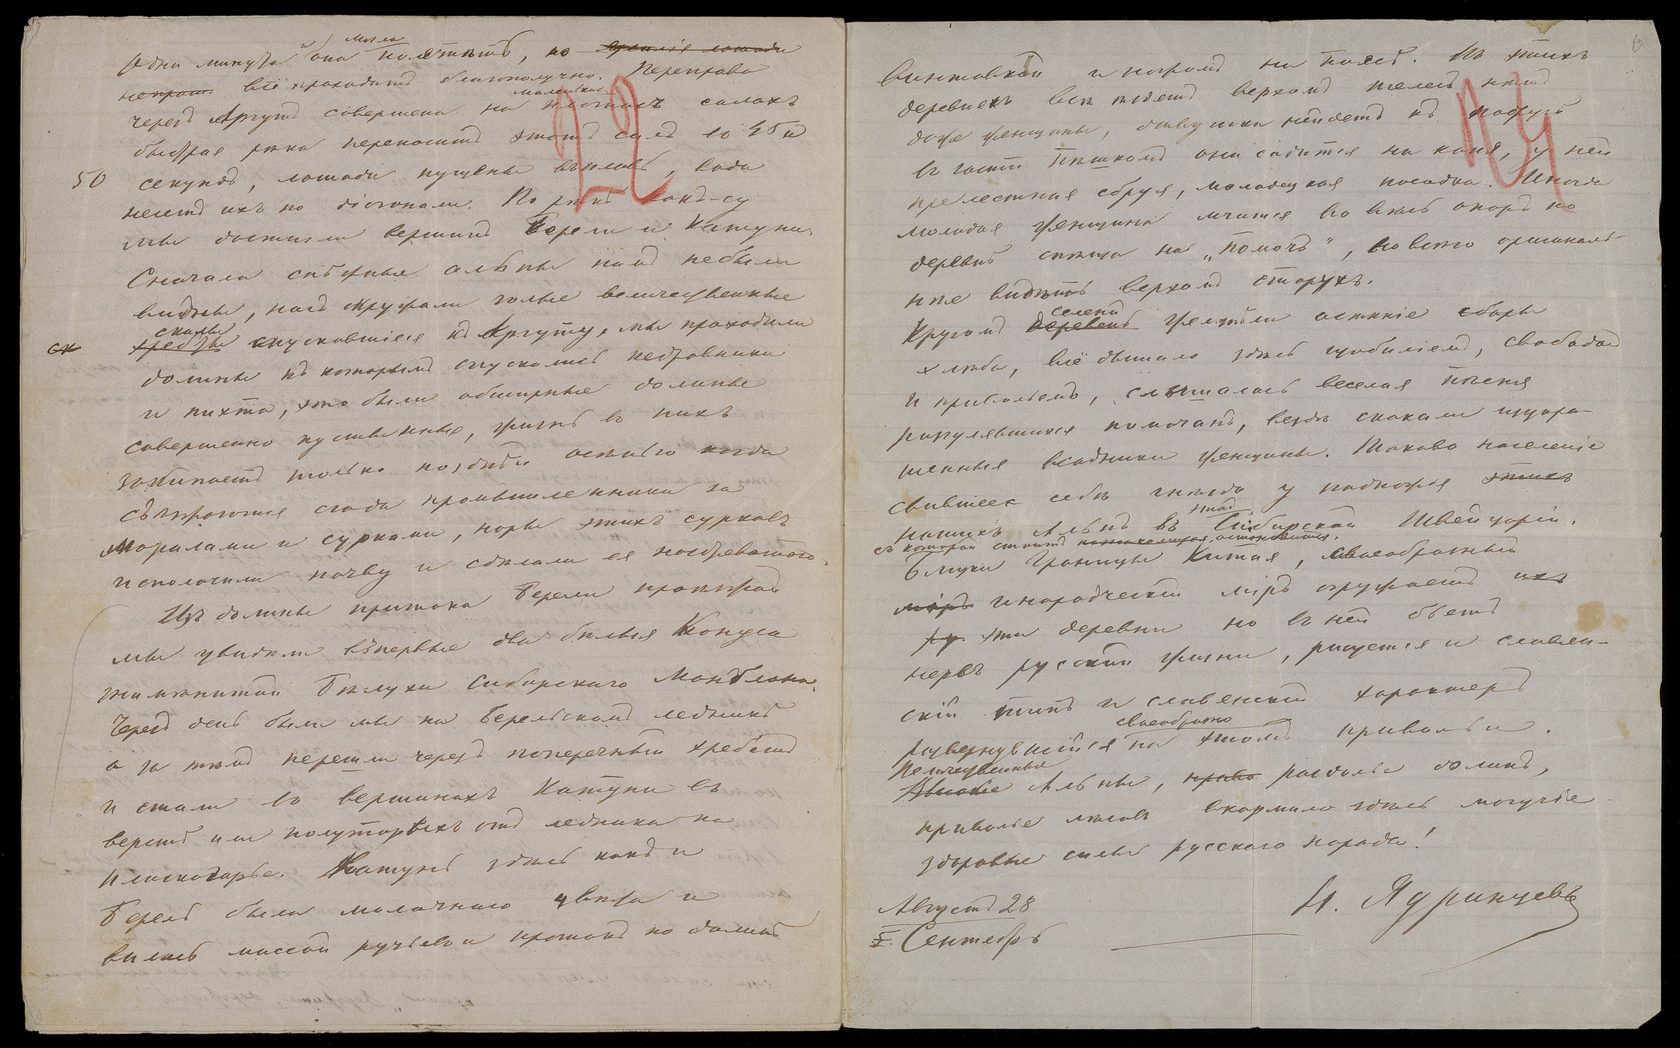 Одна минута и она могла полѣтѣть, но усилія лошади
все проходитъ благополучно. Переправа
через Аргутъ совершена на маленькихъ плотахъ салахъ
быстрая рѣка переноситъ этотъ салъ въ
50
секундъ, лошади пущены вплавь, вода
несетъ ихъ по діогонали. По рѣкѣ
мы достигли вершинъ Берели и Катуни.
Сначала снѣжные альпы намъ небыли
видны, насъ окружали голые величественные
ск
скалы хребты спускавшіеся къ Аргуту, мы проходили
долины къ которымъ спускались кедровники
и пихта, это были обширные долины
совершенно пустынные, жизнь въ нихъ
закипаетъ только поздней осенью когда
съѣзжаются сюда промышленники за
маралами и сурками, норы этихъ сурковъ
исполосили почву и сдѣлали ея ноздреватою.
Изъ долины притока Берели проѣзжая
мы увидѣли впервые два бѣлыя Конуса
знаменитой Бѣлухи Сибирскаго Монблана.
Черезъ день были мы на Берельскомъ ледникѣ
а за тѣмъ перешли черезъ поперечный хребетъ
и стали въ вершинахъ Катуни въ
верстѣ или полуторыхъ отъ ледника на
плоскогорье. Катунь здѣсь какъ и
Берель были молочнаго цвѣта и
вилась массой ручьевъ и протокъ по долинѣ
22
6
винтовкой и ногромъ на поясѣ. Въ этихъ
деревняхъ всѣ ѣздятъ верхомъ
даже женщины, дѣвушка нейдетъ къ подругѣ
въ гости пѣшкомъ она садится на коня, у ней
прелестная сбруя, молодецкая посадка. Иногда
молодая женщина мчится во весь опоръ по
деревнѣ спѣша на „помочь", но всего оригиналь-
нѣе видѣть верхомъ старухъ.
Кругомъ деревень селеній желтѣли осенніе сборы
хлѣба, всё дышало здѣсь изобиліемъ, свободой
и привольемъ, слышалась веселая пѣсня
разгулявшихся помочанъ, вездѣ скакали изукра-
шенныя всадники женщины. Таково населеніе
свившее себѣ гнѣздо у подножія этихъ
нашихъ Альпъ въ этой Сибирской Швейцаріи.
съ которой стоитъ познакомится
Близки границы Китая, своеобразный
міръ инородческій міръ окружаетъ ихъ
эти деревни но въ ней бьетъ
нервъ русской жизни, рисуется и славян-
скій типъ и славенскій характеръ
развернувшійся своеобразно на этомъ привольи.
Величественные Высокіе Альпы, право раздолье долинъ,
приволье лѣсовъ вкормило здѣсь могучіе
здоровые силы русскаго народа!
Н. Ядринцевъ
Августъ 28
Сентебрь